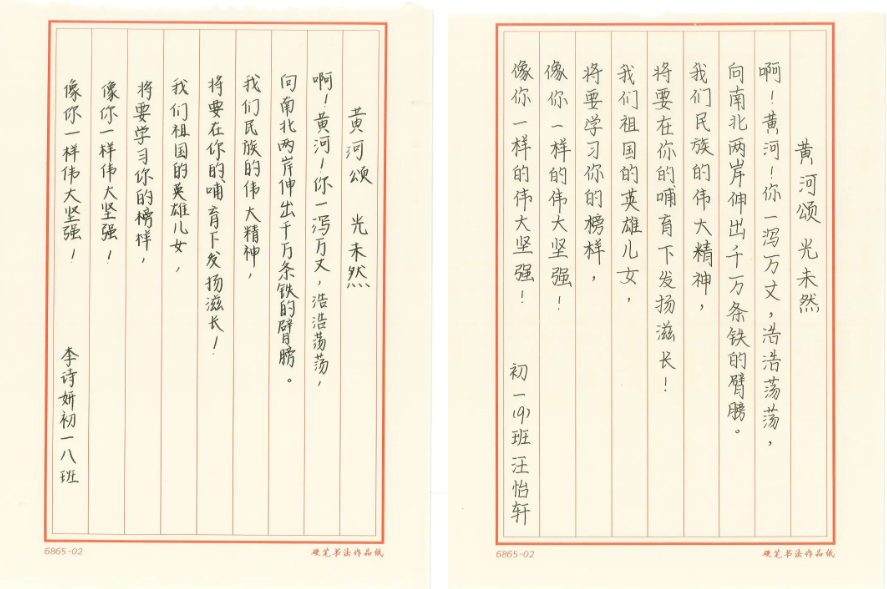 黄河颂 光未然
啊！黄河！你一泻万丈，浩浩荡荡，
向南北两岸伸出千万条铁的臂膀。
我们民族的伟大精神，
将要在你的哺育下发扬滋长！
我们祖国的英雄儿女，
将要学习你的榜样，
像你一样伟大坚强！
像你一样伟大坚强！
李诗妍初一八班
6865-02
硬笔书法作品纸
黄河颂 光未然
啊！黄河！你一泻万丈，浩浩荡荡，
向南北两岸伸出千万条铁的臂膀。
我们民族的伟大精神，
将要在你的哺育下发扬滋长！
我们祖国的英雄儿女，
将要学习你的榜样，
像你一样的伟大坚强！
像你一样的伟大坚强！
初一(9)班汪怡轩
6865-02
硬笔书法作品纸